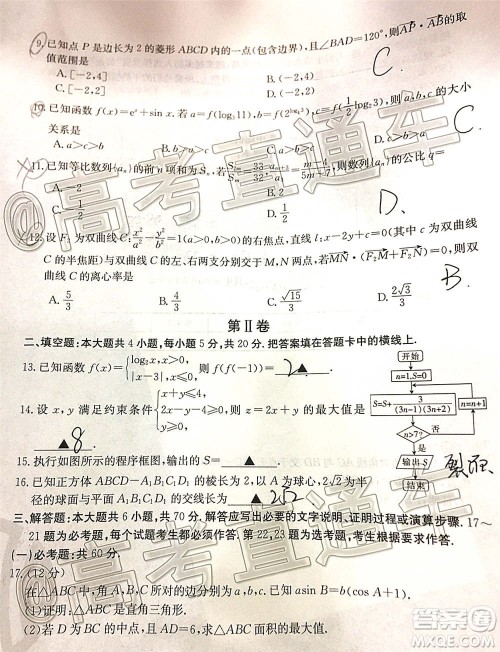 9.已知点 P 是边长为 2 的菱形 ABCD 内的一点(包含边界),且∠BAD=120°,则AP·AB的取
值范围是
A.[-2,4] B.(-2,4) C.
C.[-2,2]
10.已知函数 f(x)=eˣ+sin x.若 a=f(log₃11),b=f( ),c=f( ),则 a,b,c 的大小
关系是
A.a>c>b D. C.
11.已知等比数列{aₙ}的前 n 项和为 Sₙ,若 则数列{aₙ}的公比 q=
A.-2 B. C.2 D. D.
12.设 F₂ 为双曲线 C:x²/a²-y²/b²=1(a>0,b>0)的右焦点,直线 l:x-2y+c=0(其中 c 为双曲线
C 的半焦距)与双曲线 C 的左、右两支分别交于 M,N 两点,若MN·(F₂M+F₂N)=0,则双曲线
C 的离心率是
B.
A.5/3 B.4/3 C.√15/3 D.2√3/3
第Ⅱ卷
二、填空题:本大题共 4 小题,每小题 5 分,共 20 分.把答案填在答题卡中的横线上.
13.已知函数 f(x)={log₂x,x>0, |x-3|,x≤0, 则 f(f(-1))= ▲ . 2
14.设 x,y 满足约束条件 则 z=2x+y 的最大值是
▲ . 8
15.执行如图所示的程序框图,则输出的 S= ▲ .
开始
n=1,S=0
S=S+3/((3n-1)(3n+2))
n=n+1
n>7?
否
是
输出S
结束
裂项
16.已知正方体 ABCD-A₁B₁C₁D₁ 的棱长为 2,以 A 为球心,2√2为半
径的球面与平面 A₁B₁C₁D₁ 的交线长为 ▲ .
三、解答题:本大题共 6 小题,共 70 分.解答应写出必要的文字说明、证明过程或演算步骤.17~
21 题为必考题,每个试题考生都必须作答.第 22,23 题为选考题,考生根据要求作答.
(一)必考题:共 60 分.
17.(12 分)
在△ABC 中,角 A,B,C 所对的边分别为 a,b,c,且 a+b=b(cos A+1).
(1)证明:△ABC 是直角三角形.
(2)若 D 为 BC 的中点,且 AD=6,求△ABC 面积的最大值.
@高考直通车
@高考直通车
作业帮
MXQE.COM